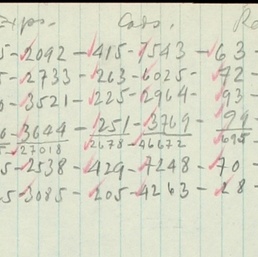 Exps. Cads. Re
5-2092-415-7543-63
5-2733-263-6025-72
-3521-225-2964-93
-3644-251-3769-99
5-27018-2678-46672-695
5-2538-429-7248-70
5-3085-205-4263-28